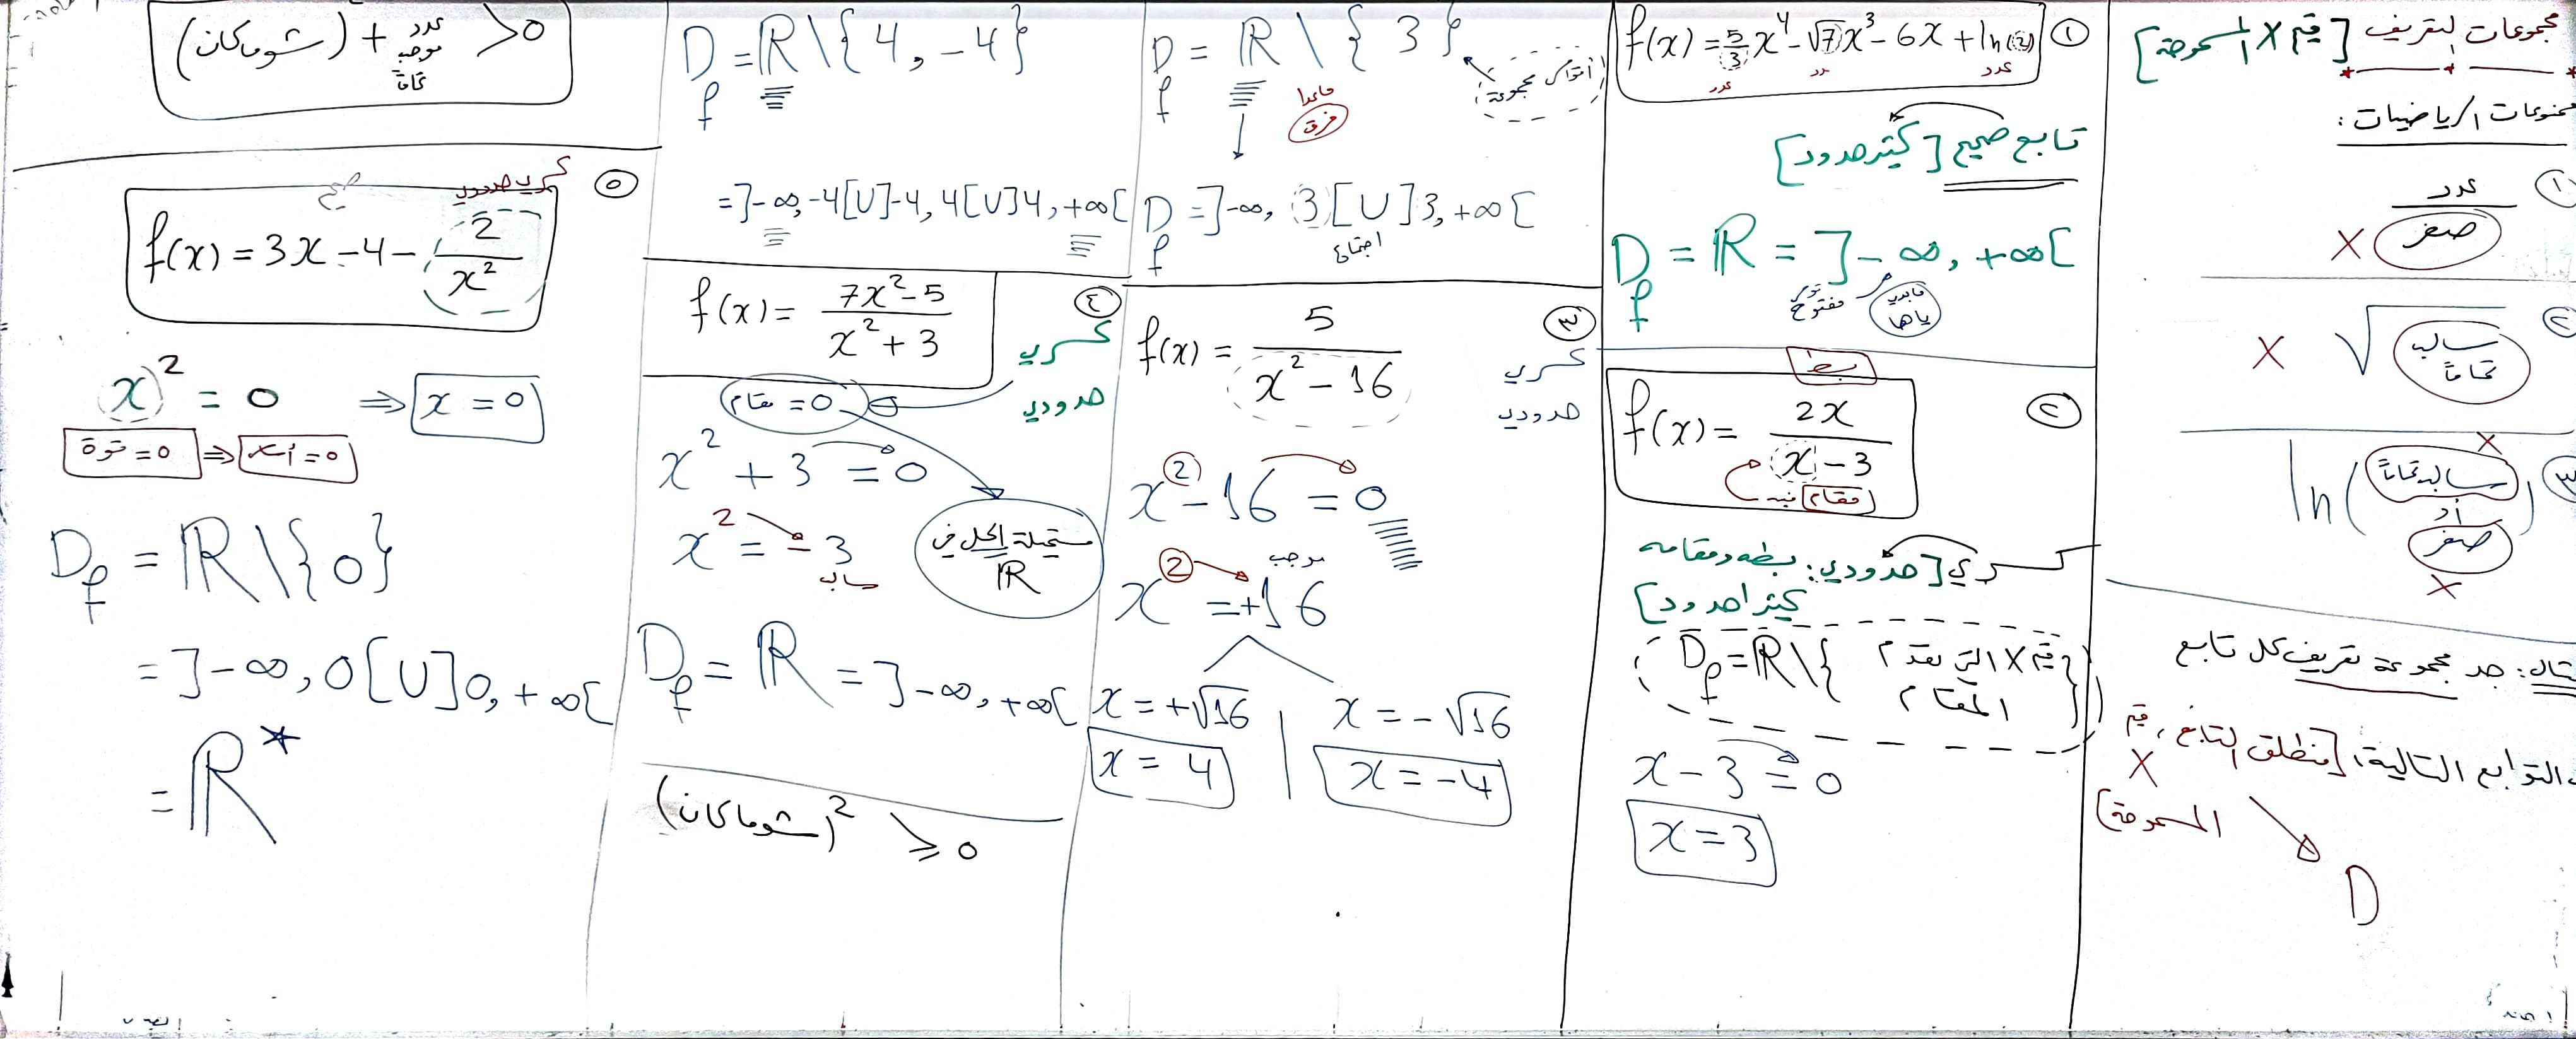 مجموعات التعريف [قيم x المسموحة]
ممنوعات الرياضيات:
① عدد / صفر X
② √ سالب تماماً X
③ ln(سالب تماماً أو صفر) X
مثال: جد مجموعة تعريف كل تابع
التوابع التالية: [منطلق التابع، قيم
x المسموحة]
D
① f(x) = 5/3 x⁴ - √7 x³ - 6x + ln(2)
عدد عدد عدد
تابع صحيح [كثير حدود]
D_f = ℝ = ]-∞, +∞[
مفتوح
② f(x) = 2x / (x - 3)
بسط
مقام فيه x
كسري [حدودي: بسطه ومقامه
كثيرا حدود]
D_f = ℝ \ {قيم x التي تعدم المقام}
x - 3 = 0
x = 3
D_f = ℝ \ { 3 }
أقواس مجموعة
ماعدا
فرق
D_f = ]-∞, 3[ U ]3, +∞[
اجتماع
③ f(x) = 5 / (x² - 16)
كسري
حدودي
x² - 16 = 0
موجب
x² = +16
x = +√16 | x = -√16
x = 4 | x = -4
D_f = ℝ \ { 4, -4 }
= ]-∞, -4[ U ]-4, 4[ U ]4, +∞[
④ f(x) = (7x² - 5) / (x² + 3)
كسري
حدودي
مقام = 0
x² + 3 = 0
x² = -3
سالب
مستحيلة الحل في ℝ
D_f = ℝ = ]-∞, +∞[
(شو ما كان)² ⩾ 0
(شو ما كان) + عدد موجب تماماً > 0
⑤ f(x) = 3x - 4 - 2/x²
صحيح
كسري حدودي
x² = 0 ⇒ x = 0
قوة = 0 ⇒ أساس = 0
D_f = ℝ \ {0}
= ]-∞, 0[ U ]0, +∞[
= ℝ*